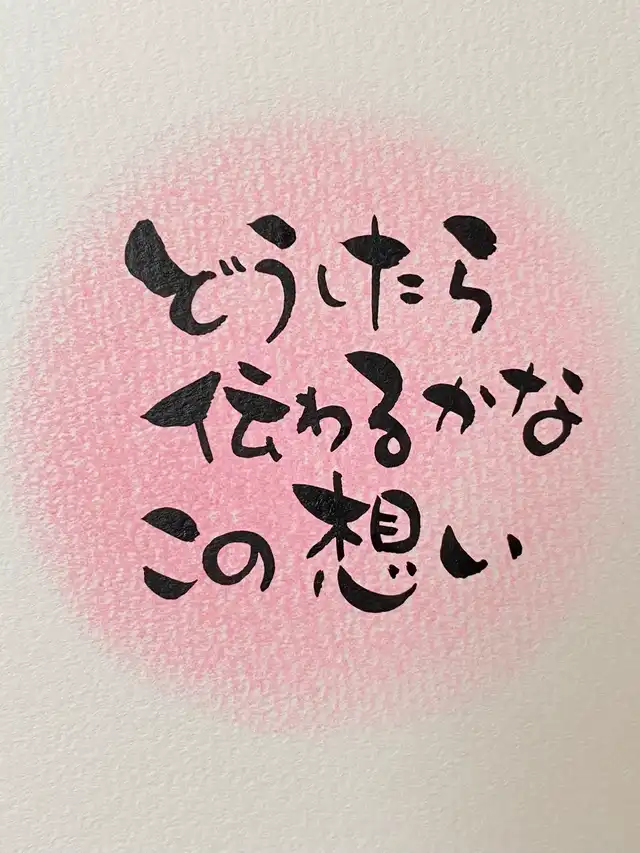 どうしたら
伝わるかな
この想い